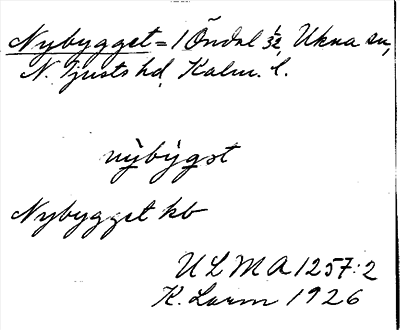 Nybygget = 1 Öndal 1/32, Ukna sn,
N. Tjusts hd, Kalm. l.
nybygst
Nybygget kb
ULMA 1257:2
K. Larm 1926